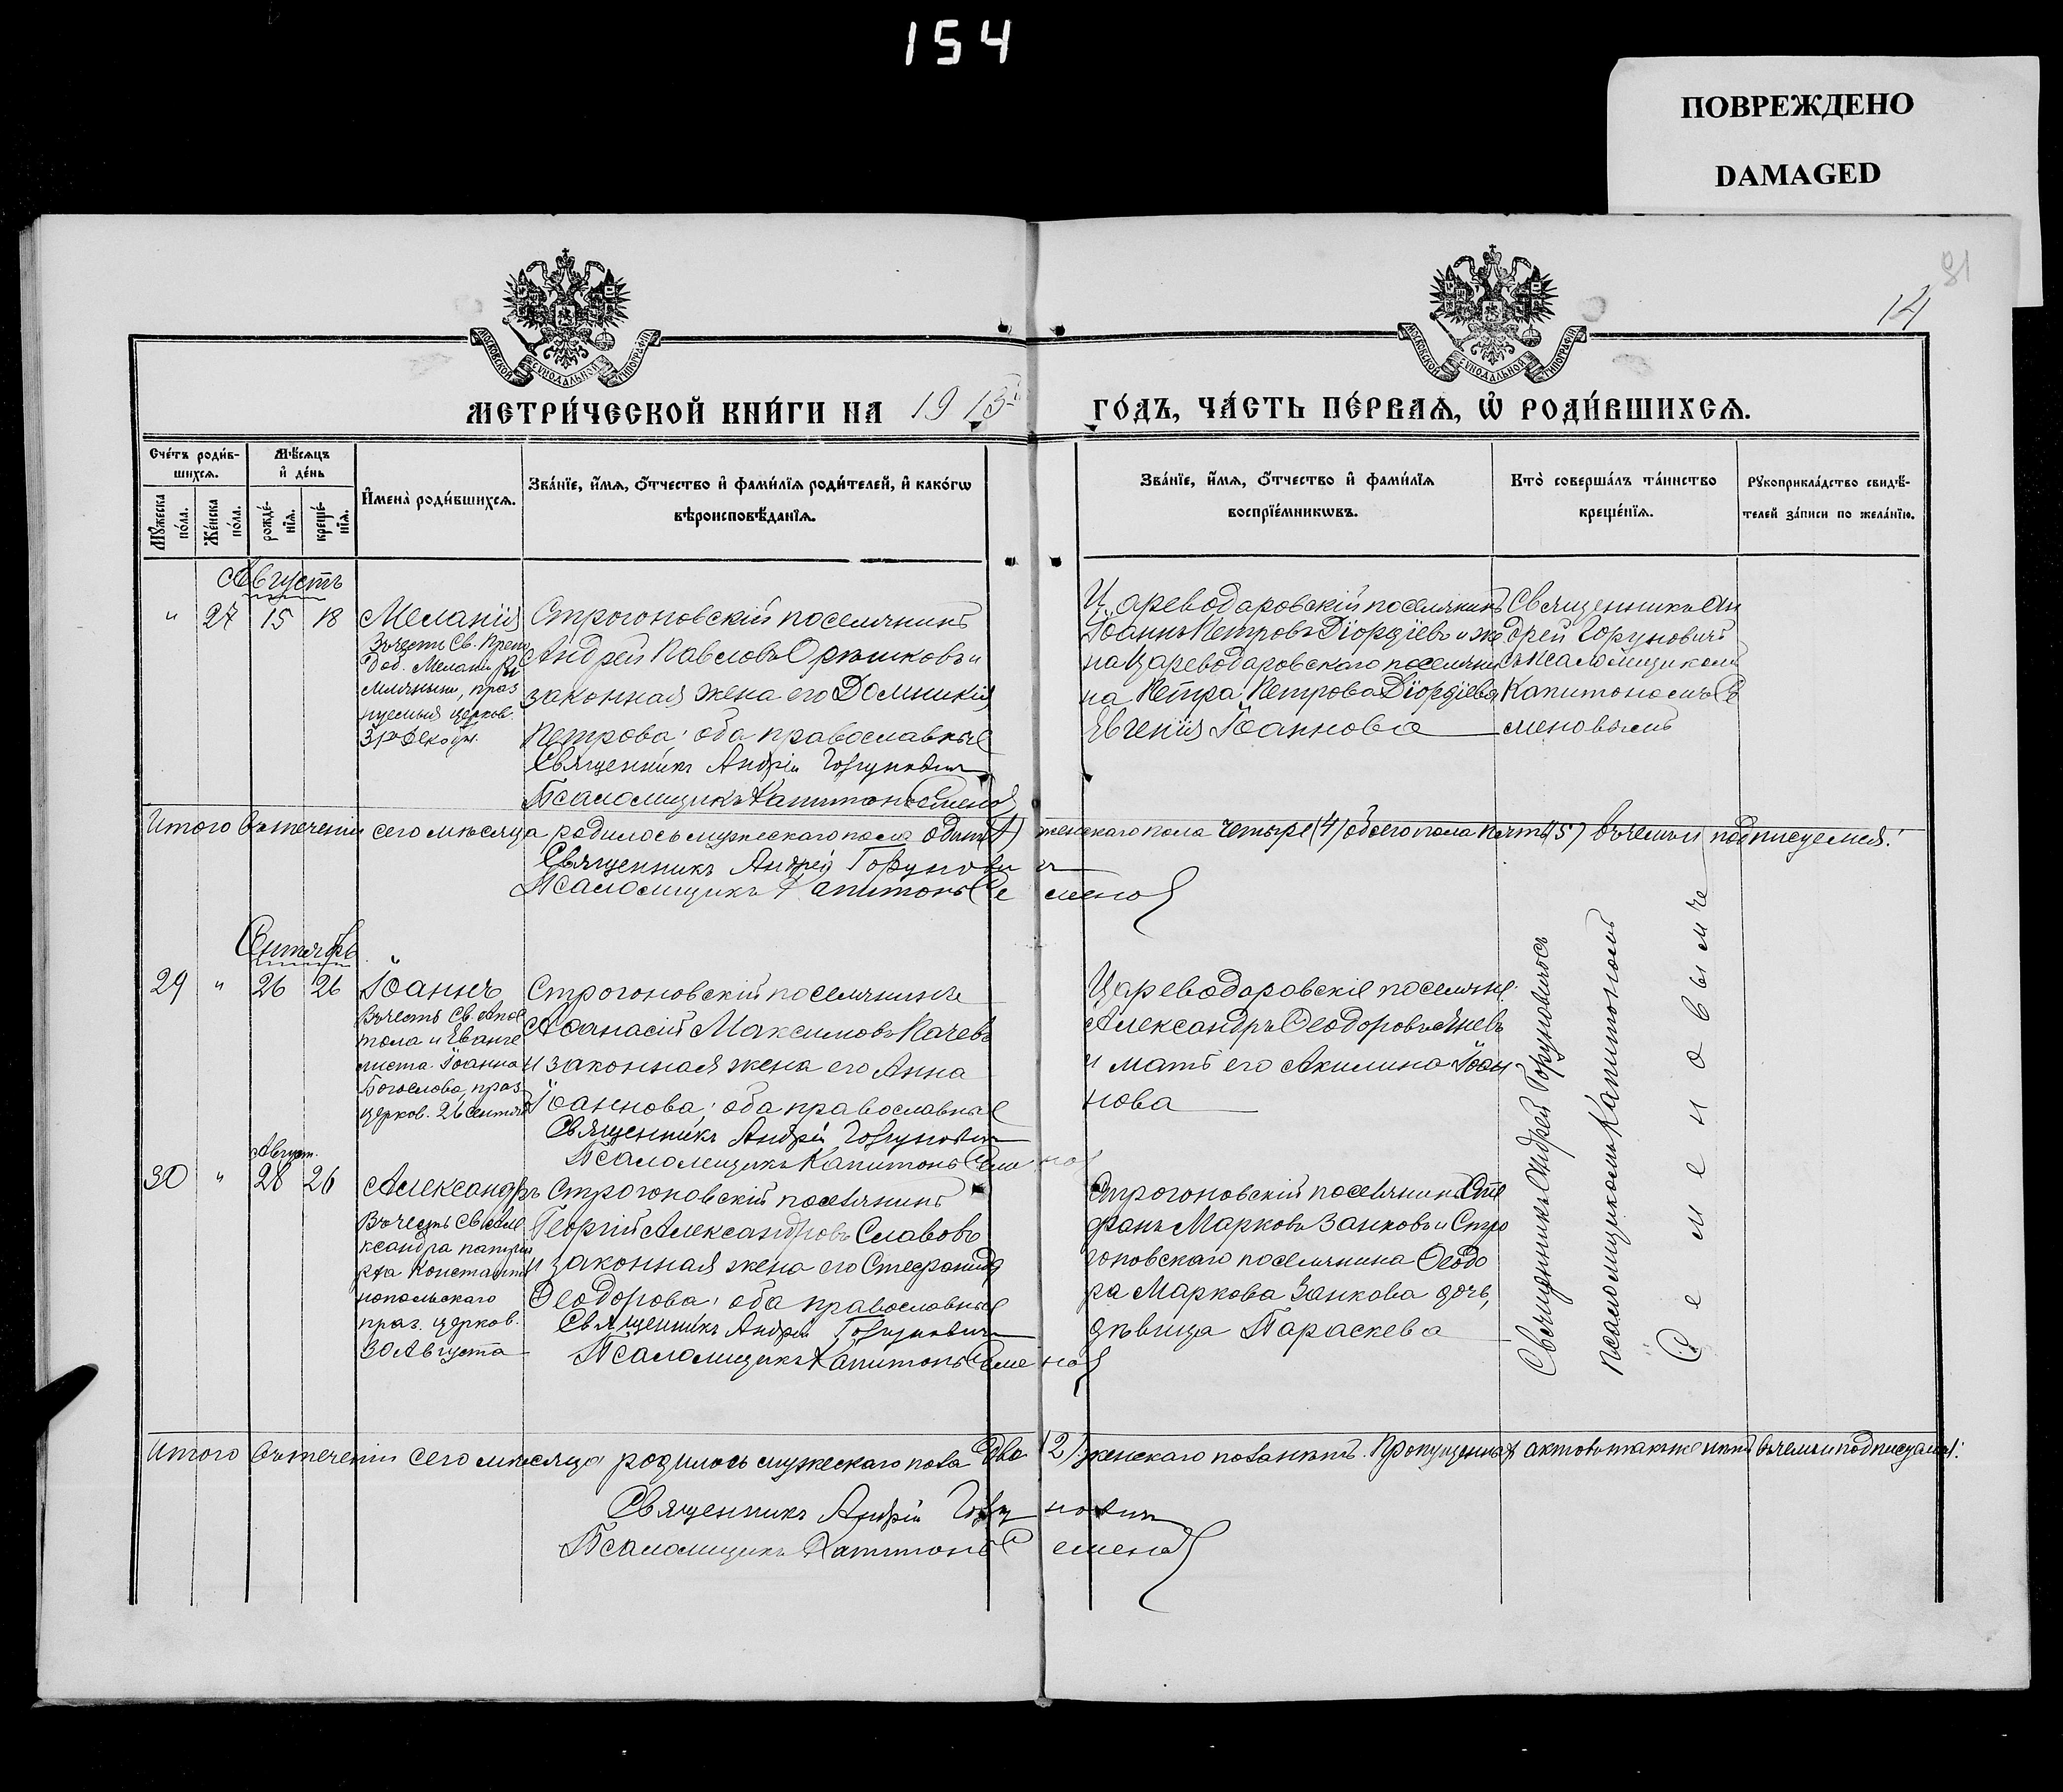 154
ПОВРЕЖДЕНО
DAMAGED
81
14
МОСКОВСКОЙ СУНОДАЛЬНОЙ ТИПОГРАФІИ
МОСКОВСКОЙ СУНОДАЛЬНОЙ ТИПОГРАФІИ
МЕТРИ́ЧЕСКОЙ КНИ́ГИ НА 1913й ГО́ДЪ, ЧА́СТЬ ПЕ́РВАѦ, Ѡ РОДИ́ВШИХСѦ.
Сче́тъ роди́в-
шихсѧ.
Мѣ́сяцъ
и де́нь
Мꙋжеска по́ла.
Же́нска по́ла.
рожде́-нїѧ.
креще́-нїѧ.
Имена̀ роди́вшихсѧ.
Зва́нїе, и́мѧ, о́тчество и фами́лїѧ роди́телей, и како́гѡ
вѣроисповѣ́данїѧ.
Зва́нїе, и́мѧ, о́тчество и фами́лїѧ
воспрїе́мникѡвъ.
Кто̀ соверша́лъ та́инство
креще́нїѧ.
Рꙋкоприкла́дство свидѣ́-
телей за́писи по жела́нїю.
Августъ
" 27 15 18
Меланія
Въ честь Св. Препо
доб. Мелани Ри
мляныни, праз
нуемыя церков.
31го Декабр.
Строгоновскій поселянинъ
Андрей Павловъ Орѣшковъ и
законная жена его Домникія
Петрова; оба православные
Священникъ Андрей Горунович
Псаломщикъ Капитонъ Семенов
Цареводаровскій поселянинъ
Іоаннъ Петровъ Діордіевъ и же
на Цареводаровскаго поселяни
на Петра Петрова Діордіева
Евгенія Іоаннова
Священникъ Ан
дрей Горуновичъ
съ псаломщикомъ
Капитономъ Се
меновымъ
Итого въ теченіи сего мѣсяца родилось мужескаго пола одинъ (1) женскаго пола четыре (4) обоего пола пять (5) въ чемъ и подписуемся:
Священникъ Андрей Горунович
Псаломщикъ Капитонъ Семенов
Сентябрь
29 " 26 26
Іоаннъ
Въ честь Св. Апос
тола и Еванге
листа Іоанна
Богослова, праз
церков. 26 Сентяб
Строгоновскій поселянинъ
Афанасій Максимовъ Качевъ
и законная жена его Анна
Іоаннова; оба православные
Священникъ Андрей Горунович
Псаломщикъ Капитонъ Семенов
Цареводаровскіе поселяне:
Александръ Феодоровъ Яневъ
и мать его Акилина Іоан
нова
Август.
30 " 28 26
Александръ
Въ честь Св. Але
ксандра патріа
рха Константи
нопольскаго
праз. церков.
30 Августа
Строгоновскій поселянинъ
Георгій Александровъ Славовъ
и законная жена его Стефанида
Феодорова; оба православные
Священникъ Андрей Горунович
Псаломщикъ Капитонъ Семенов
Строгоновскій поселянинъ Сте
фанъ Марковъ Занковъ и Стро
гоновскаго поселянина Феодо
ра Маркова Занкова дочь,
дѣвица Параскева
Священникъ Андрей Горуновичъ съ
псаломщикомъ Капитономъ
Семеновымъ
Итого въ теченіи сего мѣсяца родилось мужескаго пола два (2) женскаго пола нѣтъ. Пропущенныхъ актовъ также нѣтъ въ чемъ и подписуемся:
Священникъ Андрей Горунович
Псаломщикъ Капитонъ Семенов